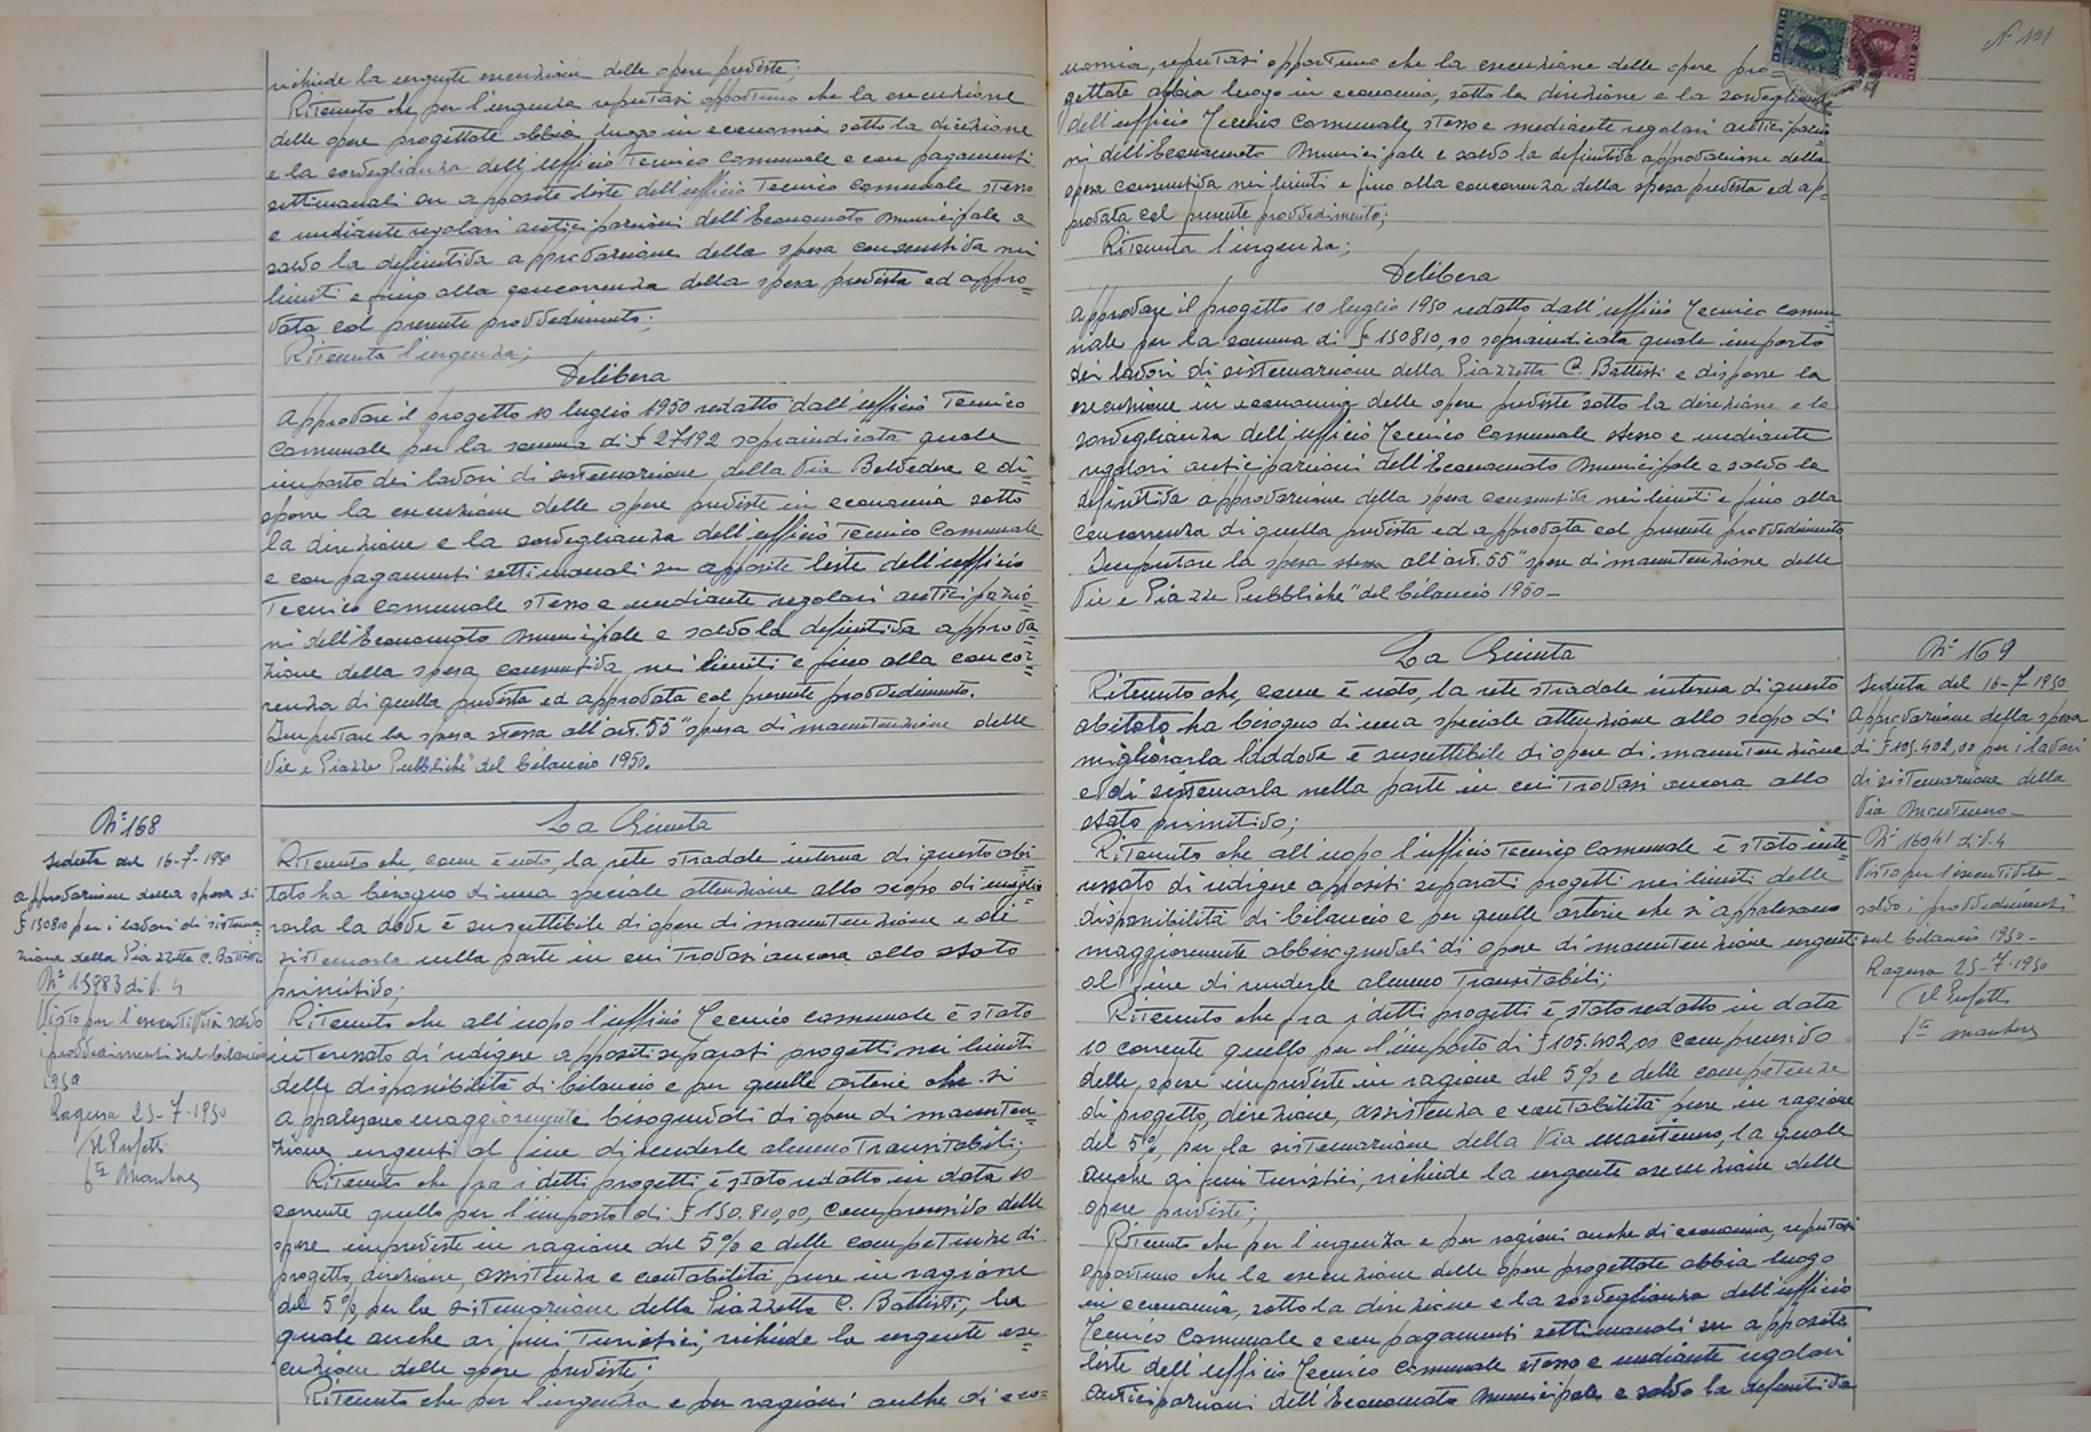 richiede la urgente esecuzione delle opere previste;
Ritenuto che per l'urgenza reputasi opportuno che la esecuzione
delle opere progettate abbia luogo in economia sotto la direzione
e la sorveglianza dell'ufficio Tecnico Comunale e con pagamenti
settimanali su apposite liste dell'ufficio Tecnico Comunale stesso
e mediante regolari anticipazioni dell'Economato Municipale e
salvo la definitiva approvazione della spesa consentita nei
limiti e fino alla concorrenza della spesa prevista ed appro=
vata col presente provvedimento;
Ritenuta l'urgenza;
Delibera
Approvare il progetto 10 luglio 1950 redatto dall'ufficio Tecnico
Comunale per la somma di £ 27192 sopraindicata quale
importo dei lavori di sistemazione della Via Belvedere e di=
sporre la esecuzione delle opere previste in economia sotto
la direzione e la sorveglianza dell'ufficio Tecnico Comunale
e con pagamenti settimanali su apposite liste dell'ufficio
Tecnico Comunale stesso e mediante regolari anticipazio=
ni dell'Economato Municipale e salvo la definitiva approva=
zione della spesa consentita nei limiti e fino alla concor=
renza di quella prevista ed approvata col presente provvedimento.
Imputare la spesa stessa all'art. 55 "spesa di manutenzione delle
Vie e Piazze Pubbliche" del bilancio 1950.
N° 168
Seduta del 16-7-1950
approvazione della spesa di
£ 150810 per i lavori di sistema=
zione della Piazzetta C. Battisti
N° 15983 di V. 4
Visto per l'esecutività salvo
i provvedimenti sul bilancio
1950
Ragusa 25-7-1950
Il Prefetto
La Giunta
Ritenuto che, come è noto, la rete stradale interna di questo abi
tato ha bisogno di una speciale attenzione allo scopo di miglio
rarla la dove è suscettibile di opere di manutenzione e di
sistemarla nella parte in cui trovasi ancora allo stato
primitivo;
Ritenuto che all'uopo l'ufficio Tecnico Comunale è stato
interessato di redigere appositi separati progetti nei limiti
delle disponibilità di bilancio e per quelle arterie che si
appalesano maggiormente bisognevoli di opere di manuten=
zione urgenti al fine di renderle almeno transitabili;
Ritenuto che fra i detti progetti è stato redatto in data 10
corrente quello per l'importo di £ 150.810,00, comprensivo delle
opere impreviste in ragione del 5% e delle competenze di
progetto, direzione, assistenza e contabilità pure in ragione
del 5%, per la sistemazione della Piazzetta C. Battisti, la
quale anche ai fini turistici, richiede la urgente ese=
cuzione delle opere previste;
Ritenuto che per l'urgenza e per ragioni anche di eco=
N° 121
nomia, reputasi opportuno che la esecuzione delle opere pro=
gettate abbia luogo in economia, sotto la direzione e la sorveglianza
dell'ufficio Tecnico Comunale, stesso e mediante regolari anticipazio=
ni dell'Economato Municipale e salvo la definitiva approvazione della
spesa consentita nei limiti e fino alla concorrenza della spesa prevista ed ap=
provata col presente provvedimento;
Ritenuta l'urgenza;
Delibera
Approvare il progetto 10 luglio 1950 redatto dall'ufficio Tecnico Comu=
nale per la somma di £ 150810,00 sopraindicata quale importo
dei lavori di sistemazione della Piazzetta C. Battisti e disporre la
esecuzione in economia delle opere previste sotto la direzione e la
sorveglianza dell'ufficio Tecnico Comunale stesso e mediante
regolari anticipazioni dell'Economato Municipale e salvo la
definitiva approvazione della spesa consentita nei limiti e fino alla
concorrenza di quella prevista ed approvata col presente provvedimento
Imputare la spesa stessa all'art. 55 "spese di manutenzione delle
Vie e Piazze Pubbliche" del bilancio 1950-
La Giunta
Ritenuto che, come è noto, la rete stradale interna di questo
abitato, ha bisogno di una speciale attenzione allo scopo di
migliorarla laddove è suscettibile di opere di manutenzione
e di sistemarla nella parte in cui trovasi ancora allo
stato primitivo;
Ritenuto che all'uopo l'ufficio Tecnico Comunale è stato inte=
ressato di redigere appositi separati progetti nei limiti delle
disponibilità di bilancio e per quelle arterie che si appalesano
maggiormente abbisognevoli di opere di manutenzione urgenti
al fine di renderle almeno transitabili;
Ritenuto che fra i detti progetti è stato redatto in data
10 corrente quello per l'importo di £ 105.402,00 comprensivo
delle, opere impreviste in ragione del 5% e delle competenze
di progetto, direzione, assistenza e contabilità pure in ragione
del 5%, per la sistemazione della Via Mantenno, la quale
anche ai fini turistici, richiede la urgente esecuzione delle
opere previste;
Ritenuto che per l'urgenza e per ragioni anche di economia, reputasi
opportuno che la esecuzione delle opere progettate abbia luogo
in economia, sotto la direzione e la sorveglianza dell'ufficio
Tecnico Comunale e con pagamenti settimanali su apposite
liste dell'ufficio Tecnico Comunale stesso e mediante regolari
anticipazioni dell'Economato Municipale e salvo la definitiva
N° 169
Seduta del 16-7-1950
Approvazione della spesa
di £ 105.402,00 per i lavori
di sistemazione della
Via Mantenno-
N° 16041 di V. 4
Visto per l'esecutività-
salvo i provvedimenti
sul bilancio 1950-
Ragusa 25-7-1950
Il Prefetto